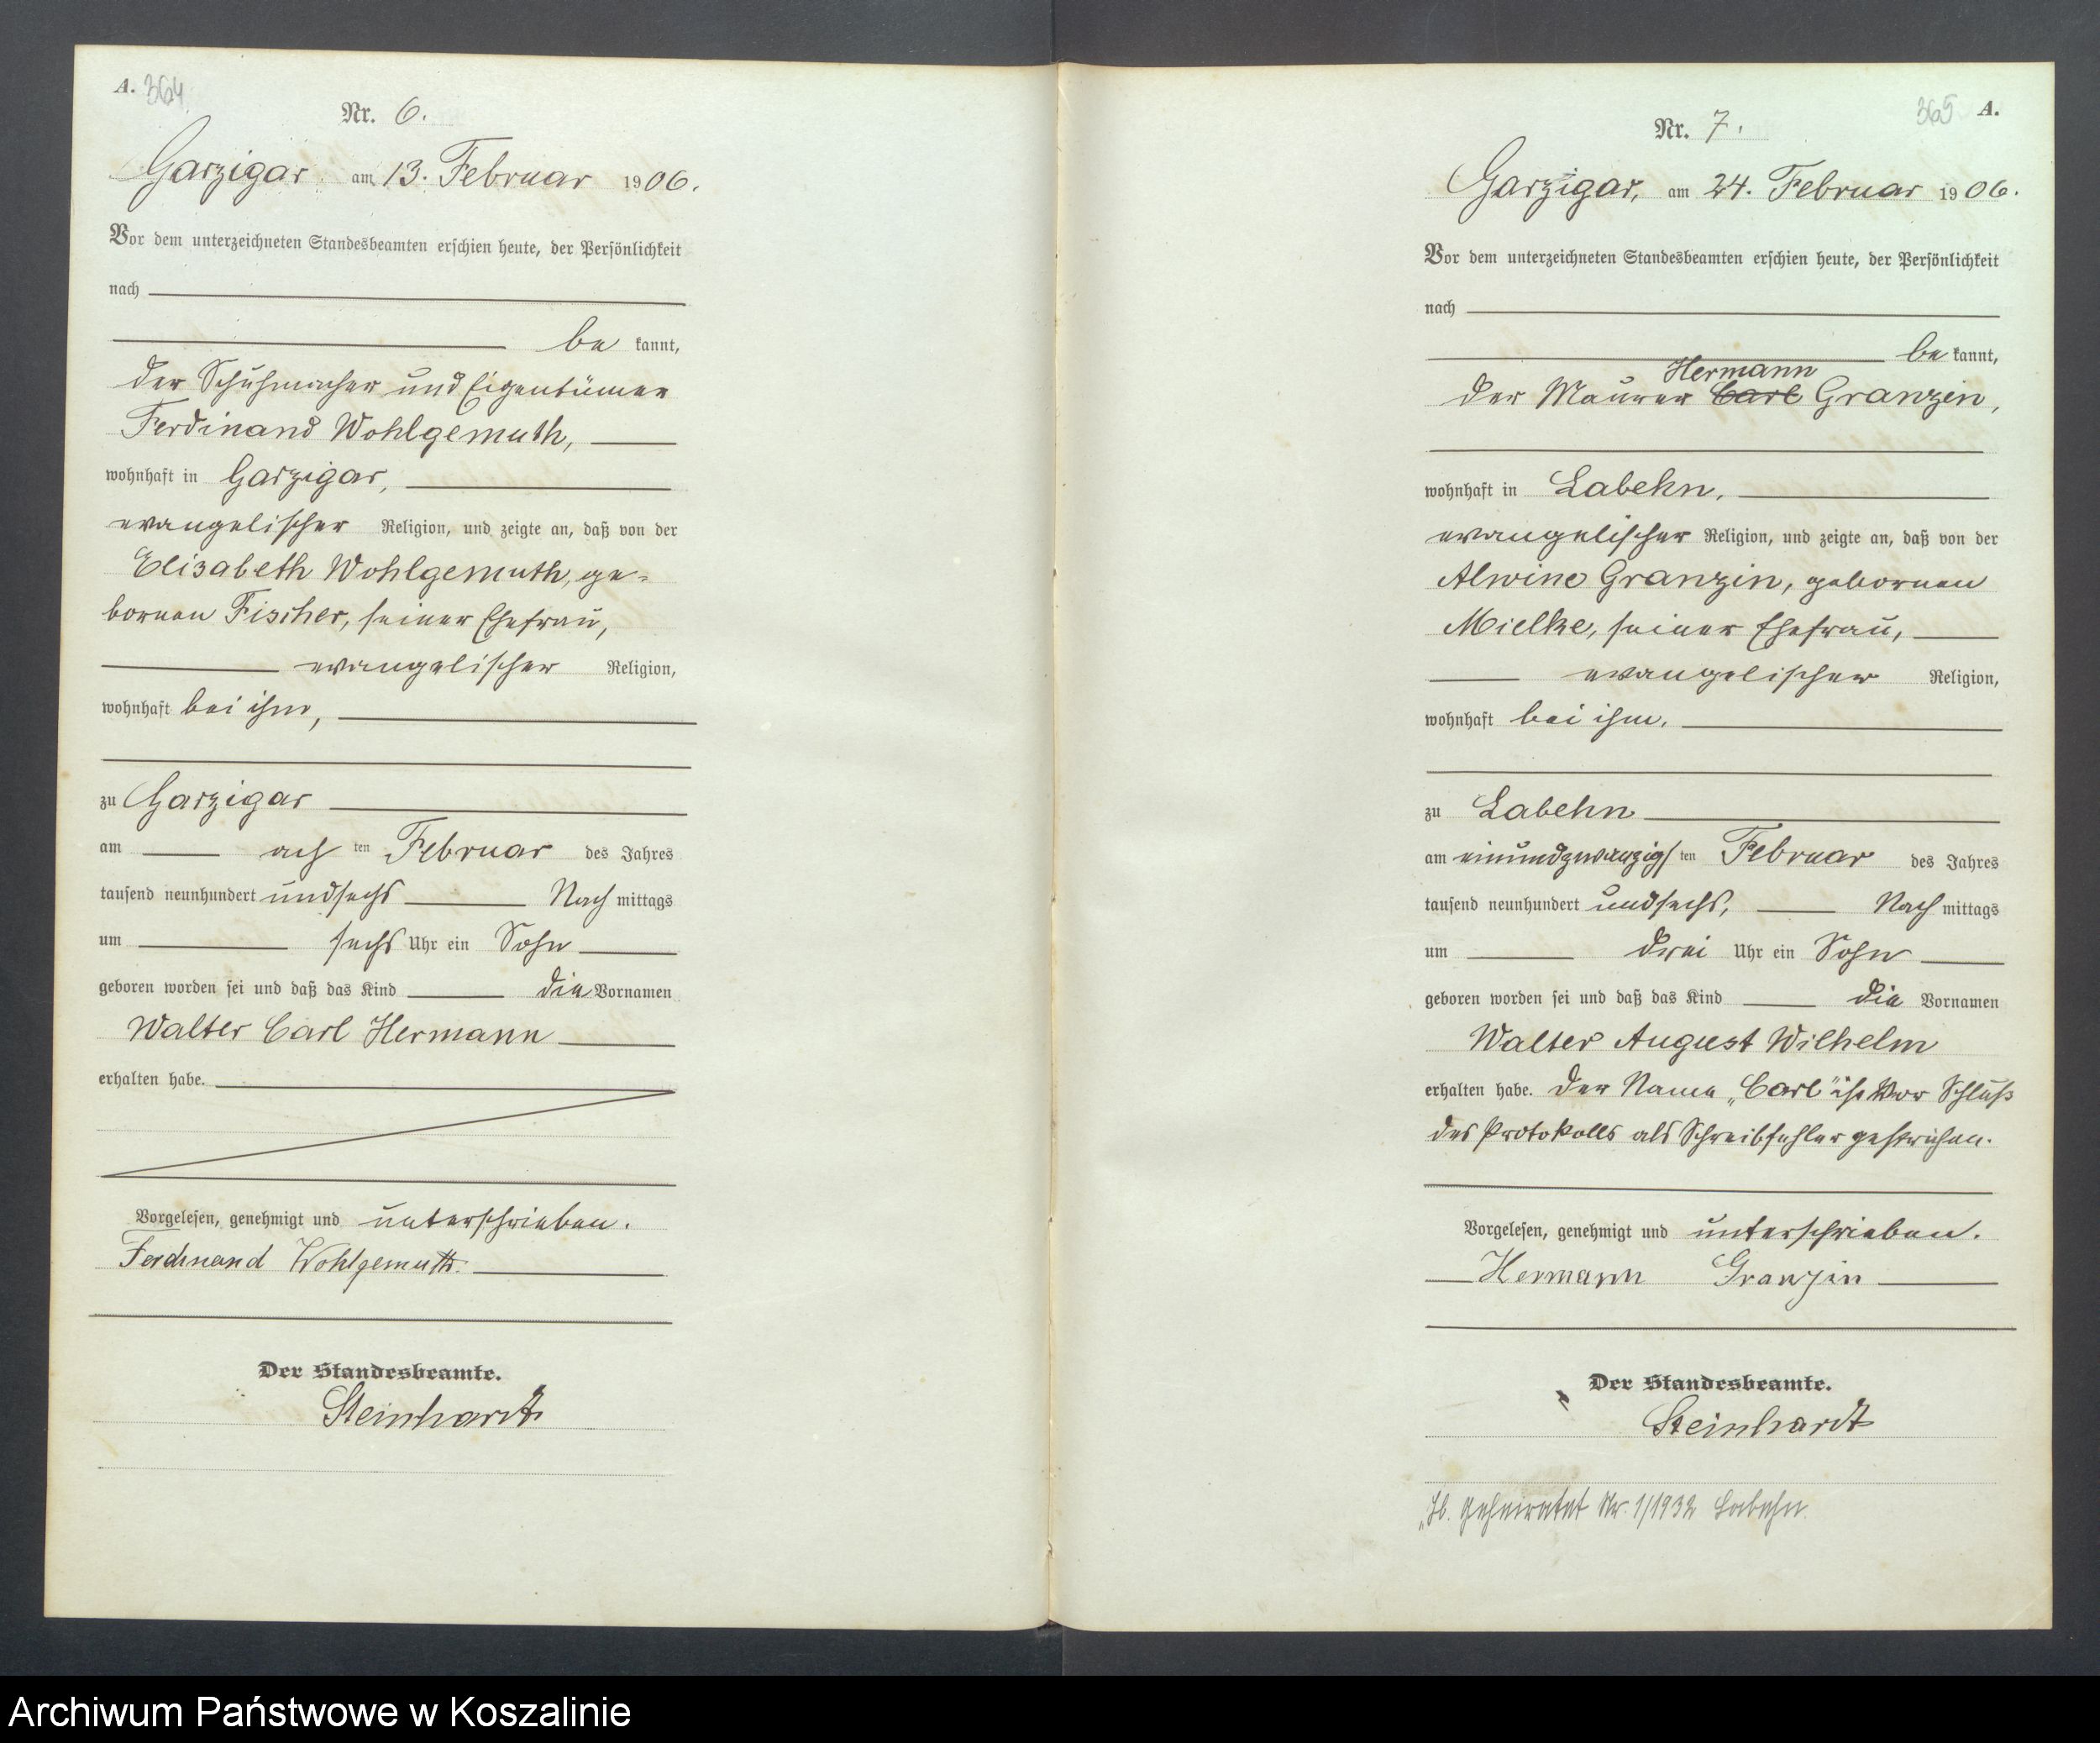 A. 364
Nr. 6.
Garzigar am 13. Februar 1906.
Vor dem unterzeichneten Standesbeamten erschien heute, der Persönlichkeit
nach
be kannt,
der Schuhmacher und Eigentümer
Ferdinand Wohlgemuth,
wohnhaft in Garzigar,
evangelischer Religion, und zeigte an, daß von der
Elisabeth Wohlgemuth, ge-
bornen Fischer, seiner Ehefrau,
evangelischer Religion,
wohnhaft bei ihm,
zu Garzigar
am ach ten Februar des Jahres
tausend neunhundert undsechs Nach mittags
um sechs Uhr ein Sohn
geboren worden sei und daß das Kind die Vornamen
Walter Carl Hermann
erhalten habe.
Vorgelesen, genehmigt und unterschrieben.
Ferdinand Wohlgemuth.
Der Standesbeamte.
Steinhardt
365 A.
Nr. 7.
Garzigar, am 24. Februar 1906.
Vor dem unterzeichneten Standesbeamten erschien heute, der Persönlichkeit
nach
be kannt,
Hermann
der Maurer Carl Granzin,
wohnhaft in Labehn,
evangelischer Religion, und zeigte an, daß von der
Alwine Granzin, gebornen
Mielke, seiner Ehefrau,
evangelischer Religion,
wohnhaft bei ihm,
zu Labehn
am einundzwanzigs ten Februar des Jahres
tausend neunhundert undsechs, Nach mittags
um drei Uhr ein Sohn
geboren worden sei und daß das Kind die Vornamen
Walter August Wilhelm
erhalten habe. Der Name „Carl" ist vor Schluß
des Protokolls als Schreibfehler gestrichen.
Vorgelesen, genehmigt und unterschrieben.
Hermann Granzin
Der Standesbeamte.
Steinhardt
geheiratet Nr. 1/1932 Labehn
Archiwum Państwowe w Koszalinie